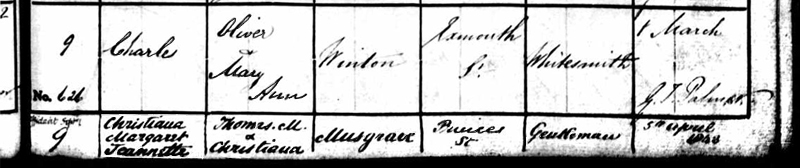 9
No. 626
Charle
Oliver
&
Mary
Ann
Winton
Exmouth
St
Whitesmith
8 March
G. J. Palmer
9
Christiana
Margaret
Jeannette
Thomas. M.
Christiana
Musgrave
Princes
St
Gentleman
5th April